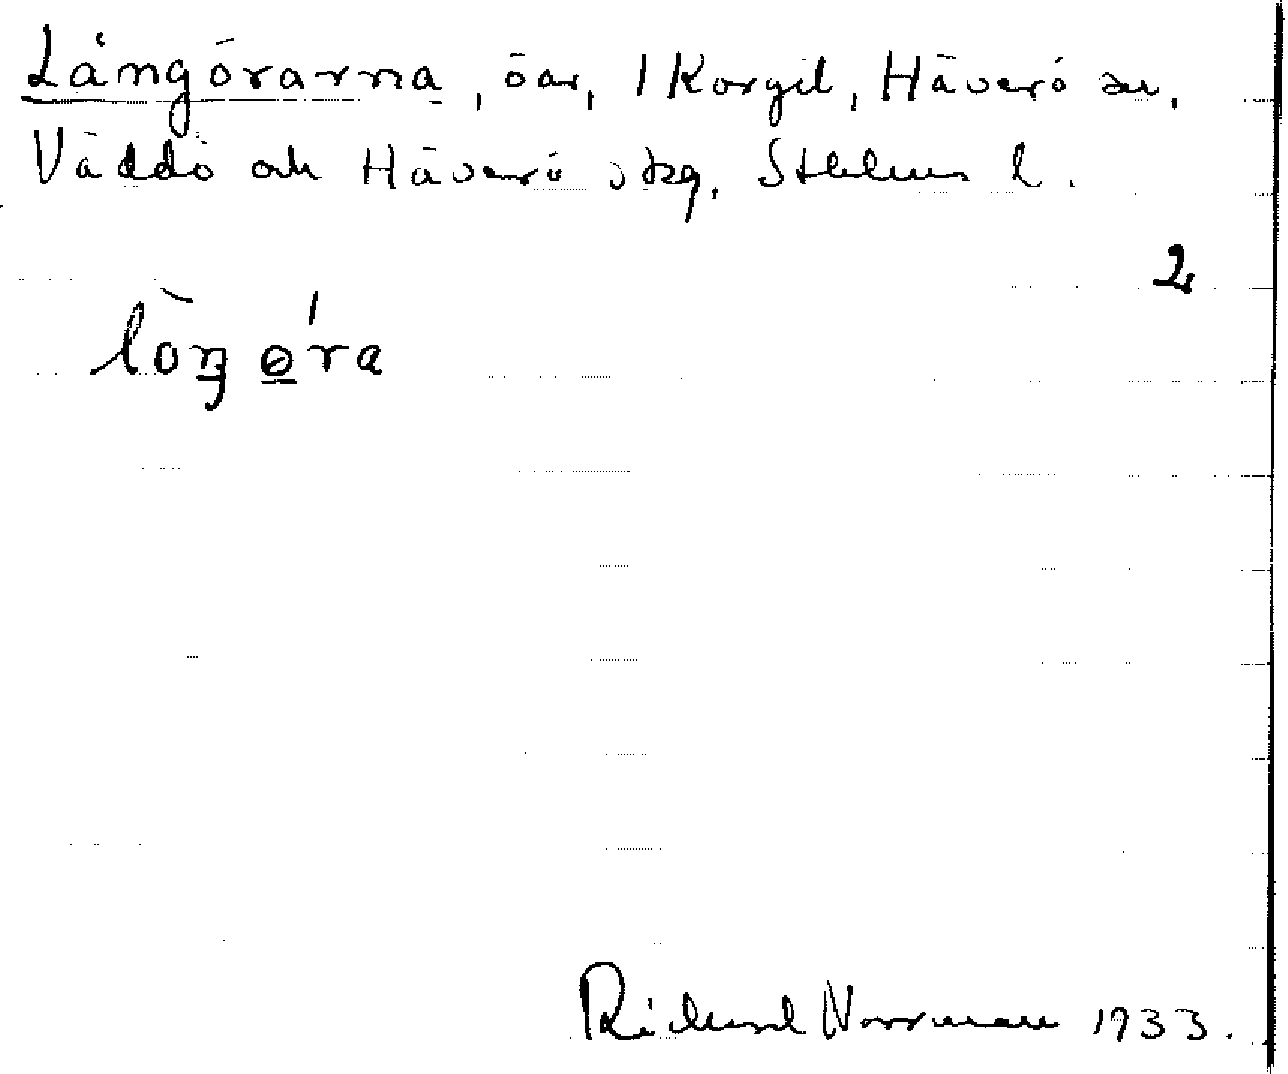 Långörarna, öar, 1 Korgil, Häverö sn.
Väddö och Häverö skg. Sthlms l.
2
lòŋøra
Richard Norrman 1933.